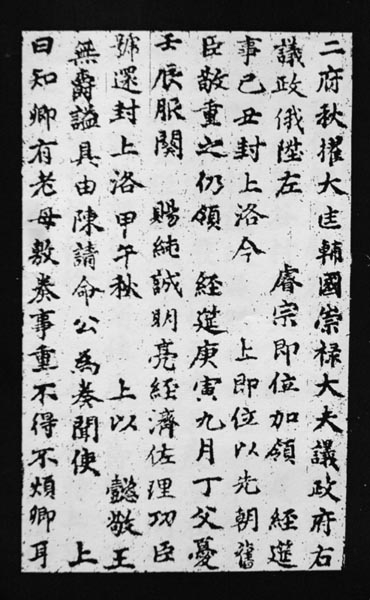 二府秋擢大匡輔國崇禄大夫議政府右
議政俄陞左 睿宗即位加領 經筵
事己丑封上洛今 上即位以先朝舊
臣敬重之仍領 經筵庚寅九月丁父憂
壬辰服闋 賜純誠明亮經濟佐理功臣
號還封上洛甲午秋 上以 懿敬王
無爵謚具由陳請命公為奏聞使 上
曰知卿有老母敷奏事重不得不煩卿耳